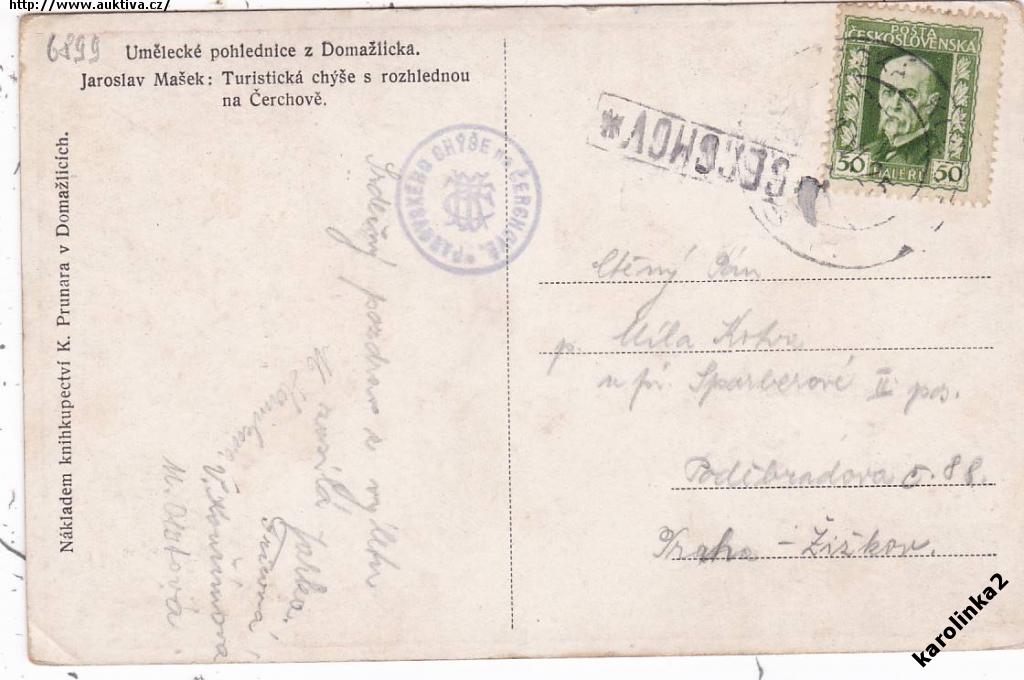 http://www.auktiva.cz/
6899
Umělecké pohlednice z Domažlicka.
Jaroslav Mašek: Turistická chýše s rozhlednou
na Čerchově.
Nákladem knihkupectví K. Prunara v Domažlicích.
PASOVSKÉHO CHÝŠE na ČERCHOVĚ.
* ČERCHOV
POŠTA
ČESKOSLOVENSKÁ
50 HALÉŘŮ 50
Srdečný pozdrav z výletu
Jarka
Ctěný Pán
p. Míla
u pí. Sparberové II pos.
Poděbradova č. 88.
Praha - Žižkov.
karolinka2